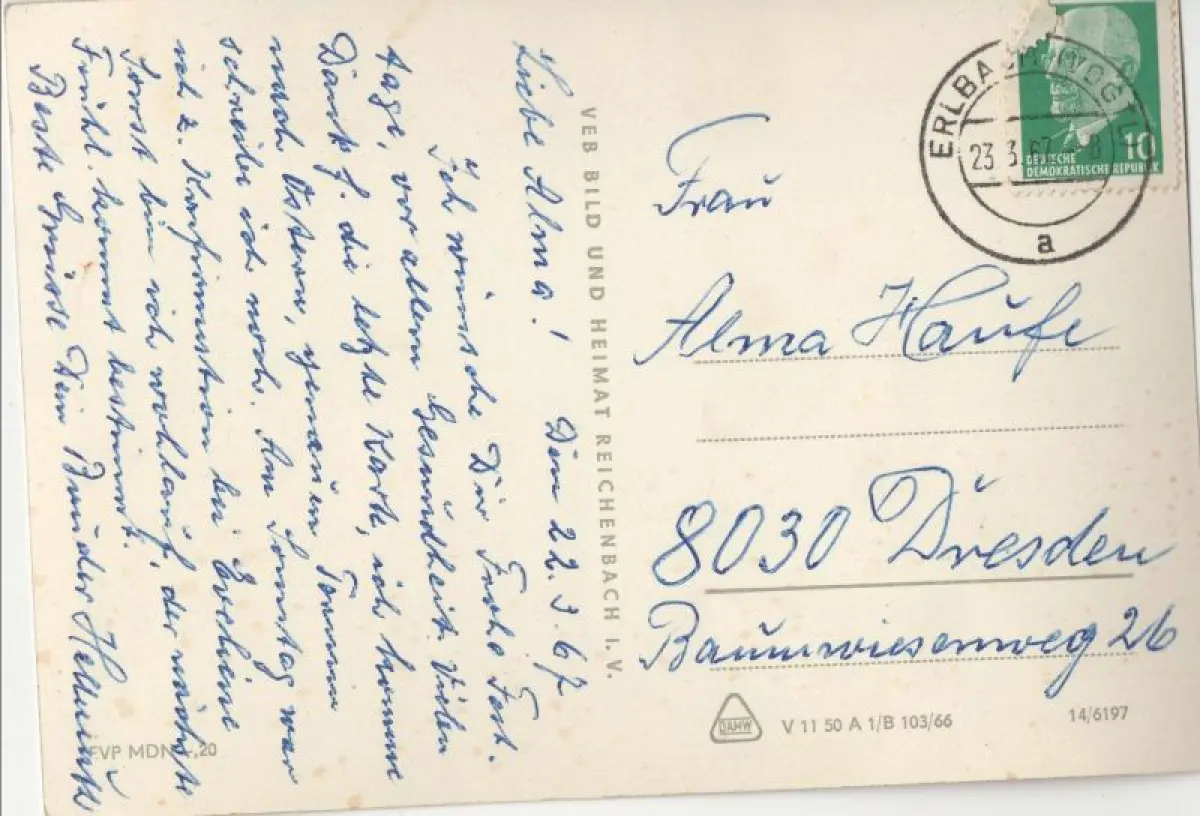 Liebe Alma! Den 22.3.67
Ich wünsche Dir Frohe Fest-
tage, vor allem Gesundheit. Vielen
Dank f. die letzte Karte, ich komme
nach Ostern, genauen Termin
schreibe ich noch. Am Sonntag war
ich z. Konfirmation bei
Sonst bin ich wohlauf, der nächste
Frühl. kommt bestimmt.
Beste Grüsse Dein Bruder Hellmuth
VEB BILD UND HEIMAT REICHENBACH I. V.
EVP MDN ,20
ERLBACH (VOGTL)
23.3.67 -8
a
10
DEUTSCHE
DEMOKRATISCHE REPUBLIK
Frau
Alma Haufe
8030 Dresden
Baumwiesenweg 26
DAMW
V 11 50 A 1/B 103/66
14/6197